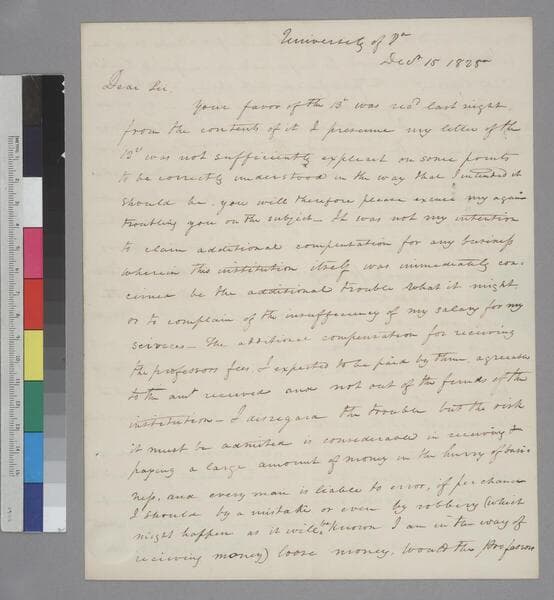 University of Va
Decr 15 1825
Dear Sir.
Your favor of the 13th was recd last night.
from the contents of it I presume my letter of the
13th was not sufficiently explicit on some points
to be correctly understood in the way that I intended it
should be. you will therefore please excuse my again
troubling you on the subject— It was not my intention
to claim additional compensation for any business
wherein this institution itself was immediately con-
cerned be the additional trouble what it might
or to complain of the insufficiency of my salary for my
services— The additional compensation for receiving
the professors fees, I expected to be paid by them agreeable
to the amt received and not out of the funds of the
institution— I disregard the trouble but the risk
it must be admitted is considerable in receiving &
paying a large amount of money in the hurry of busi-
ness, and every man is liable to error, if perchance
I should by a mistake or even by robbery (which
might happen as it will be known I am in the way of
receiving money) loose money. would the Professors